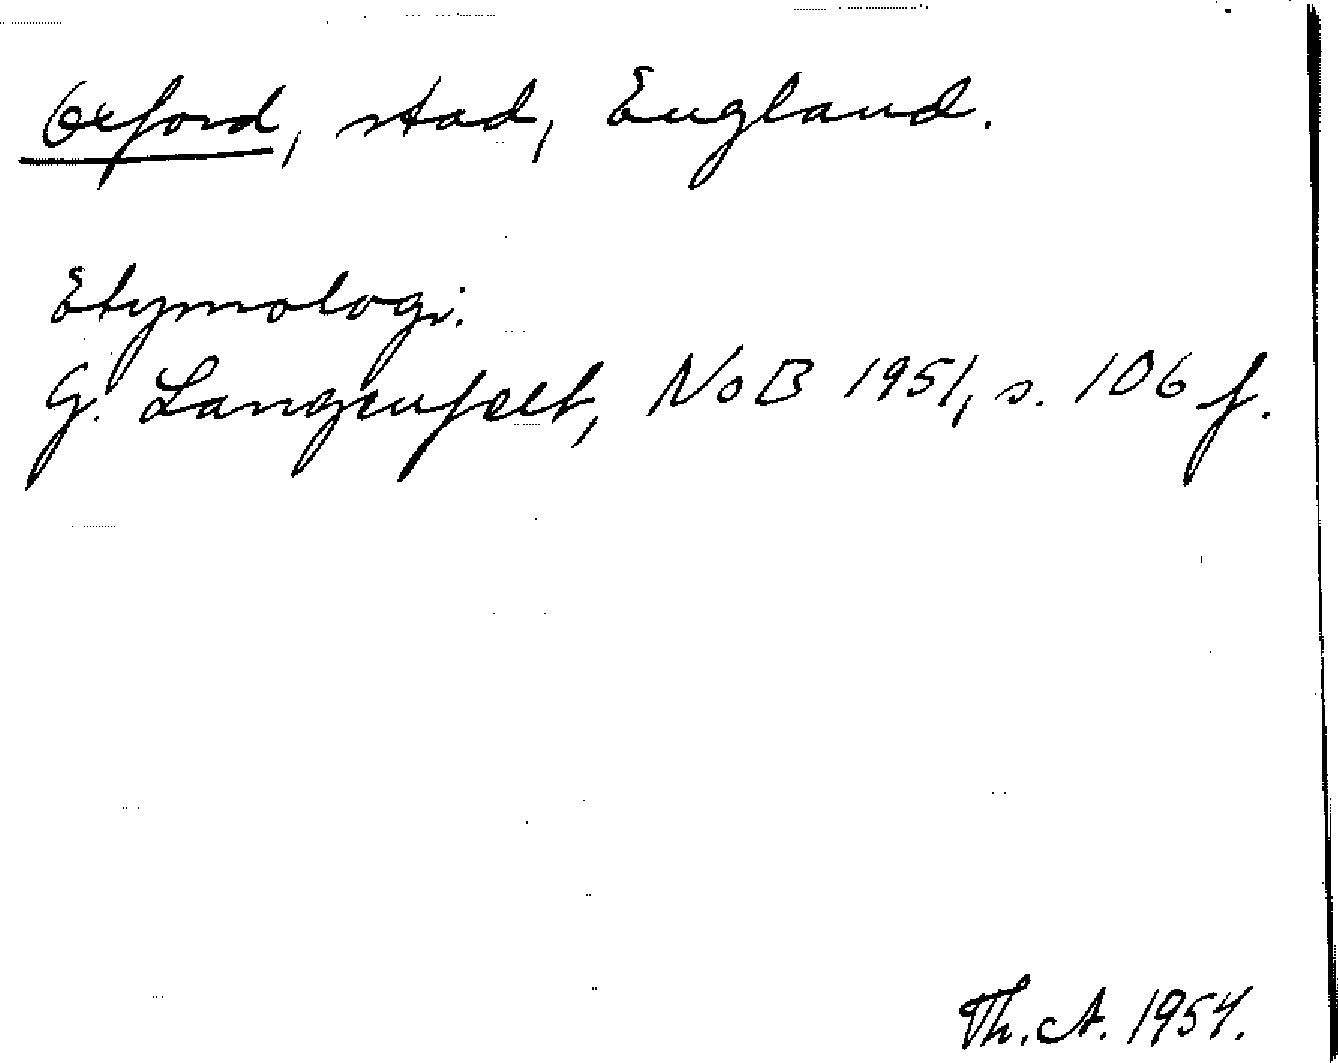 Oxford, stad, England.
Etymologi:
G. Langenfelt, NoB 1951, s. 106 f.
Th. A. 1954.